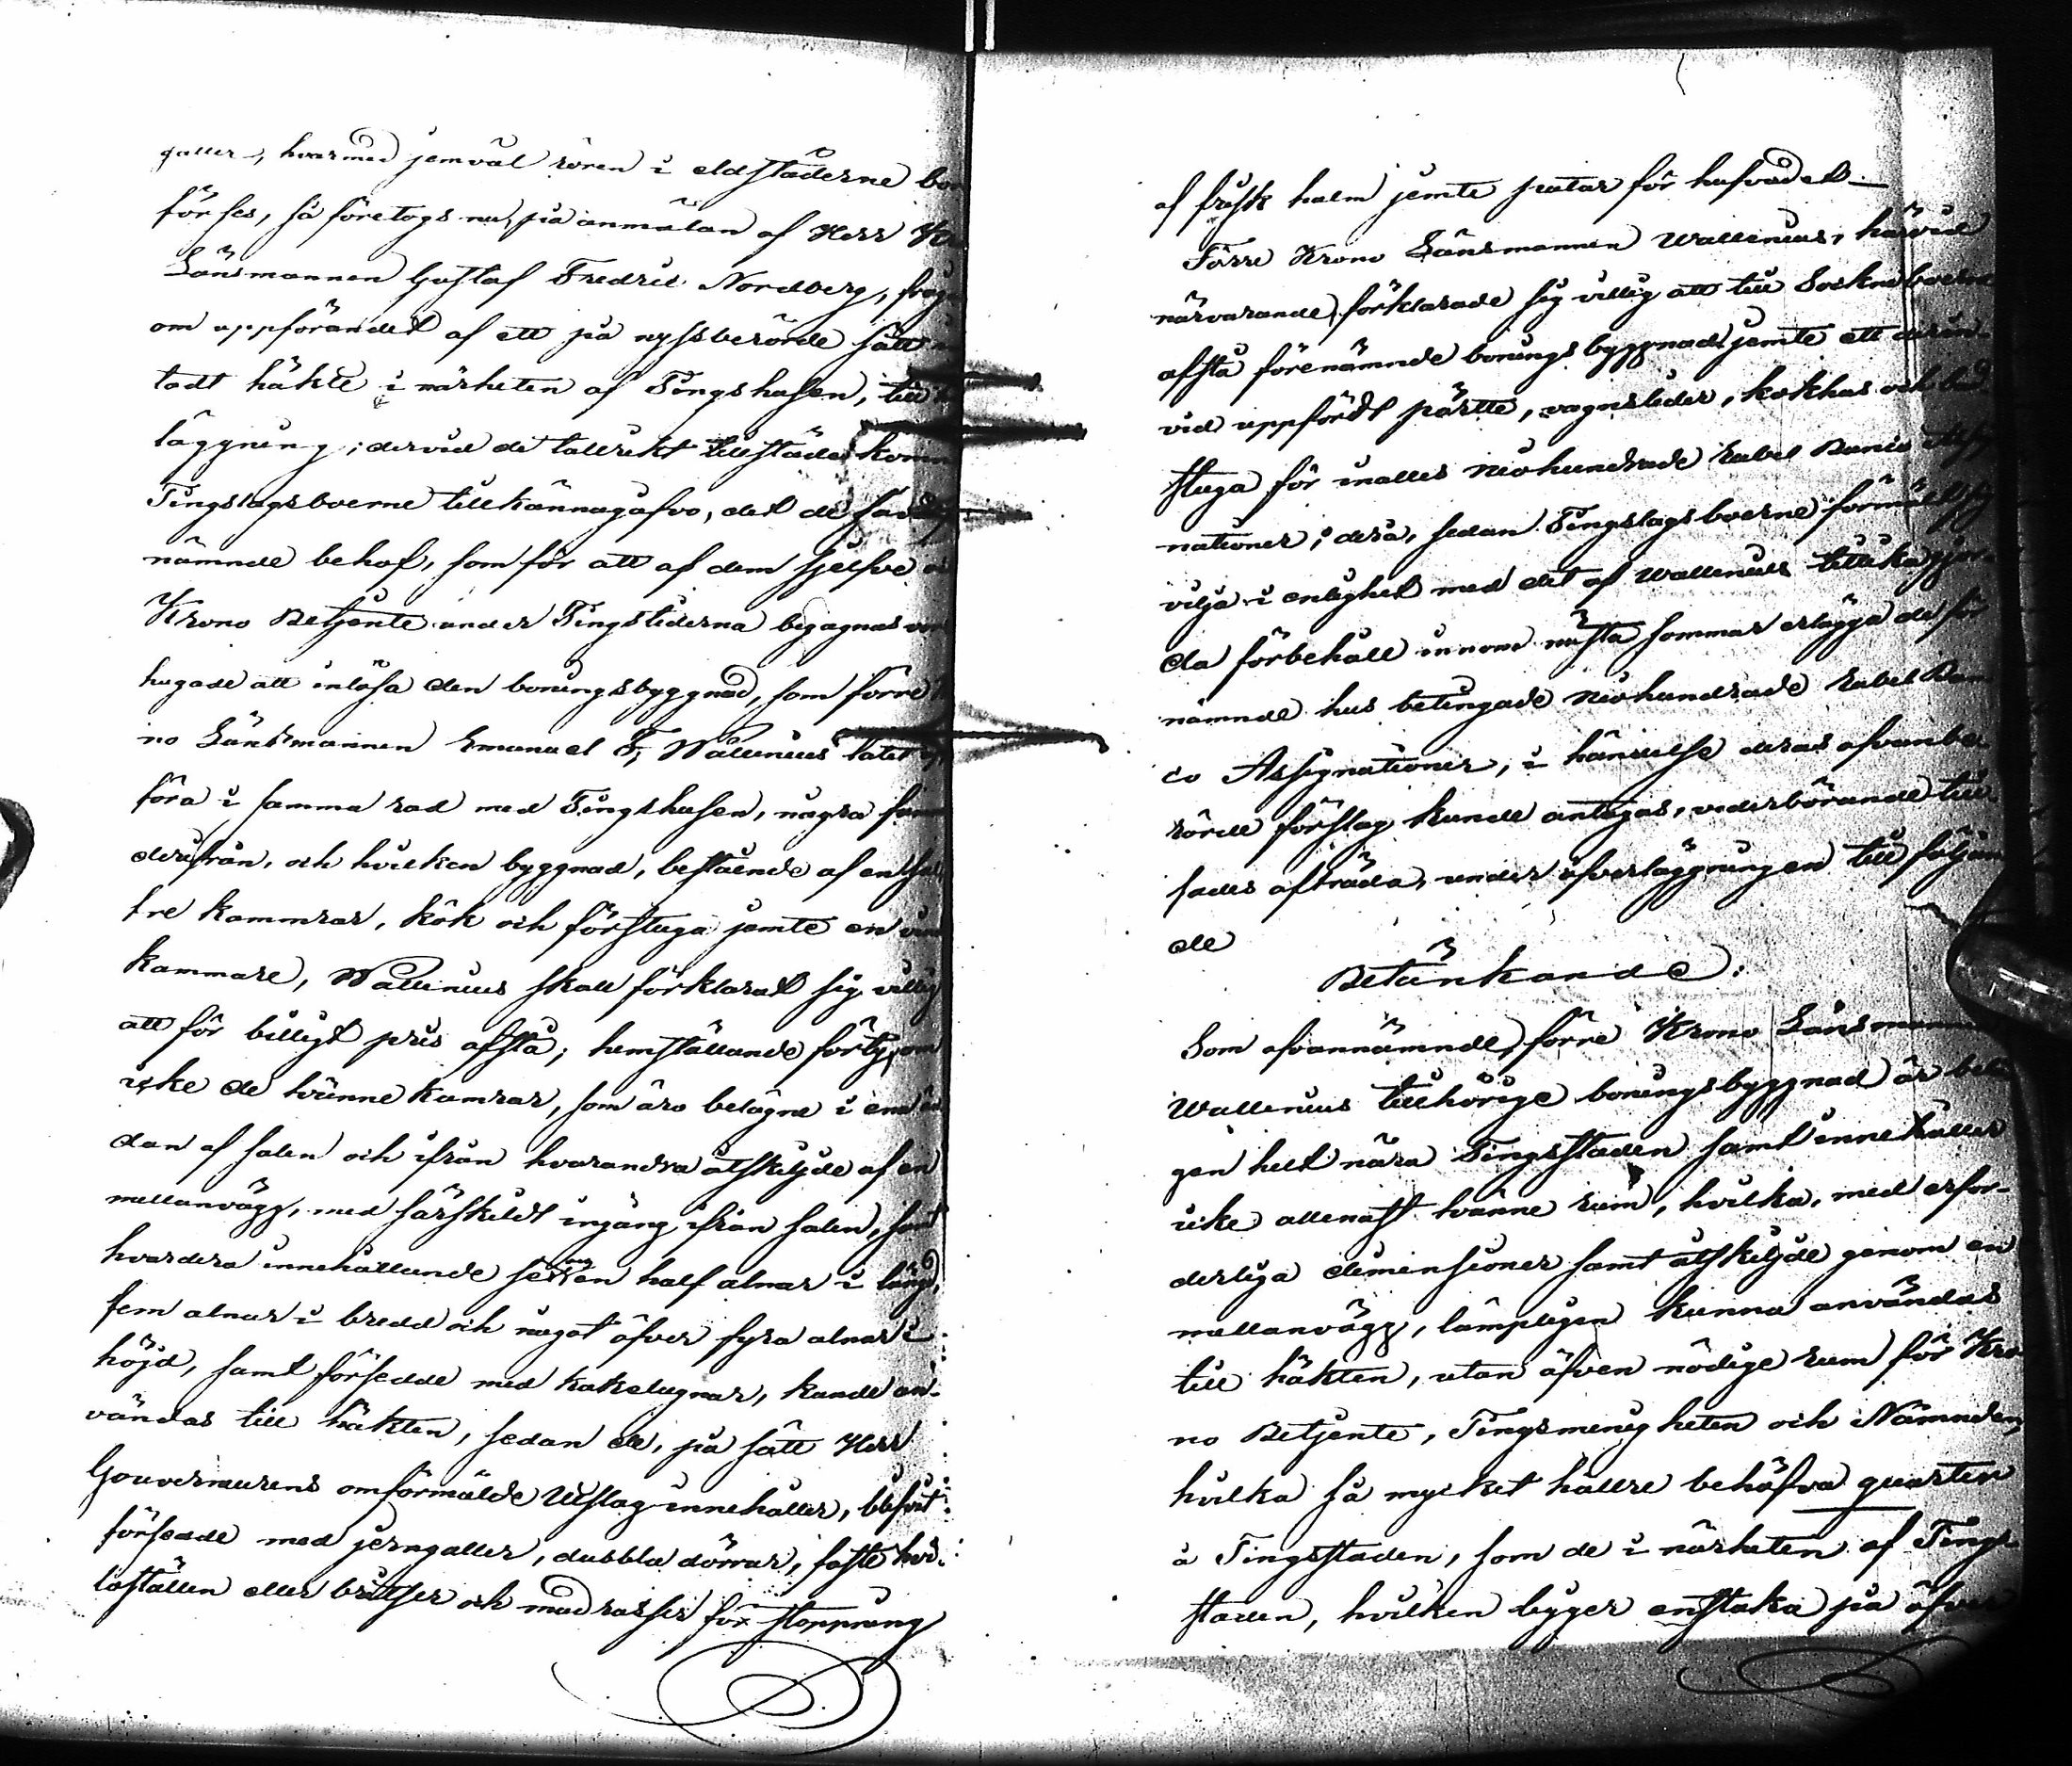 galler, hvarmed jemväl rören i eldstäderne bor
förses, så företogs nu, på anmälan af Herr Kr
Länsmannen Gustaf Fredric Nordberg, fråga
om uppförandet af ett på nyssberörde sätt
tadt häkte i närheten af Tingshusen, till
läggning; dervid de talrikt tillstädes komn
Tingslagsboerne tillkännagåfvo, det de
nämnde behof, som för att af dem sjelfve
Krono Betjente under Tingstiderna begagnas vor
hugade att inlösa den boningsbyggnad, som förre
no Länsmannen Emanuel F, Wallenius låtit
föra i samma rad med Tingshusen, några
derifrån, och hvilken byggnad, bestående af en sal
tre kammrar, kök och förstuga jemte en
kammare, Wallenius skall förklarat sig villig
att för billigt pris afstå; hemställande förty, om
icke de tvänne kamrar, som äro belägne i ena
dan af salen och ifrån hvarandra åtskiljde af en
mellanvägg, med särskildt ingång ifrån salen, samt
hvardera innehållande sex en half alnar i längd,
fem alnar i bredd och något öfver fyra alnar i
höjd, samt försedde med kakelugnar, kunde an-
vändas till häkten, sedan de, på sätt Herr
Gouverneurens omförmälde Utslag innehåller, blifvit
försedde med jerngaller, dubbla dörrar, faste hvi-
loställen eller britser och madrasser för stoppning
af frisk halm jemte putar för hufvudet. —
Förre Krono Länsmannen Wallenius, härvid
närvarande, förklarade sig villig att till Socknebroerne
afstå förenämnde boningsbyggnad jemte ett derin-
vid uppfördt pörtte, vagnslider, kokhus och bod
stuga för inalles Niohundrade Rubel Banco Assig-
nationer; dera, sedan Tingslagsboerne förmält sig
vilja i enlighet med det af Wallenius tillika gjor-
da förbehåll innom nästa sommar erlägga de för
nämnde hus betingade Niohundrade Rubel Ban
co Assignationer, i händelse deras ofvanbe-
rörde förslag kunde antagas, vederbörande till-
sades afträda, under öfverläggningen till följan
de
Betänkande:
Som ofvannämnde, förre Krono Länsmannen
Wallenius tillhörige boningsbyggnad är belä
gen helt nära Tingsstaden samt innehåller
icke allenast tvänne rum, hvilka, med erfor-
derliga dimensioner samt åtskiljde genom en
mellanvägg, lämpligen kunna användas
till häkten, utan äfven nödige rum för Kro
no Betjente, Tingsmenigheten och Nämnden,
hvilka så mycket hällre behöfva quarter
å Tingsstaden, som de i närheten af Tings
staden, hvilken ligger enstaka på öfver